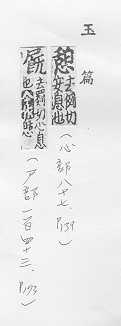 玉篇
憩去例切安息也
(心部八十七、P139)
去罽切心息也今作憩
(尸部一百四十三、P193)